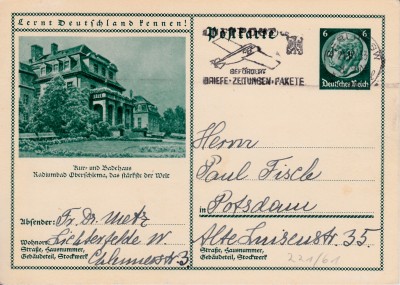 Lernt Deutschland kennen!
Postkarte
BEFÖRDERT
BRIEFE·ZEITUNGEN·PAKETE
6 6
Deutsches Reich
Kur- und Badehaus
Radiumbad Oberschlema, das stärkste der Welt
Absender: Fr. Dr. Metz
Wohnort: Lichterfelde W.
Straße, Hausnummer,
Gebäudeteil, Stockwerk
3
Herrn
Paul
in Potsdam
Alte Luisenstr 35.
Straße, Hausnummer,
Gebäudeteil, Stockwerk
221/61